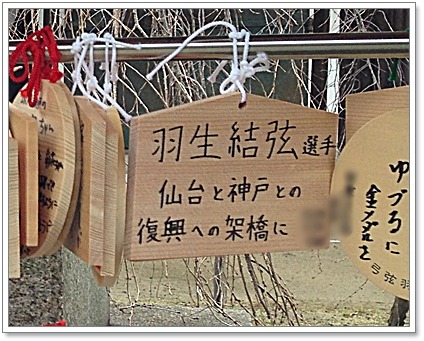 羽生結弦選手
仙台と神戸との
復興への架橋に
ゆづるに
金メダルを
弓弦羽